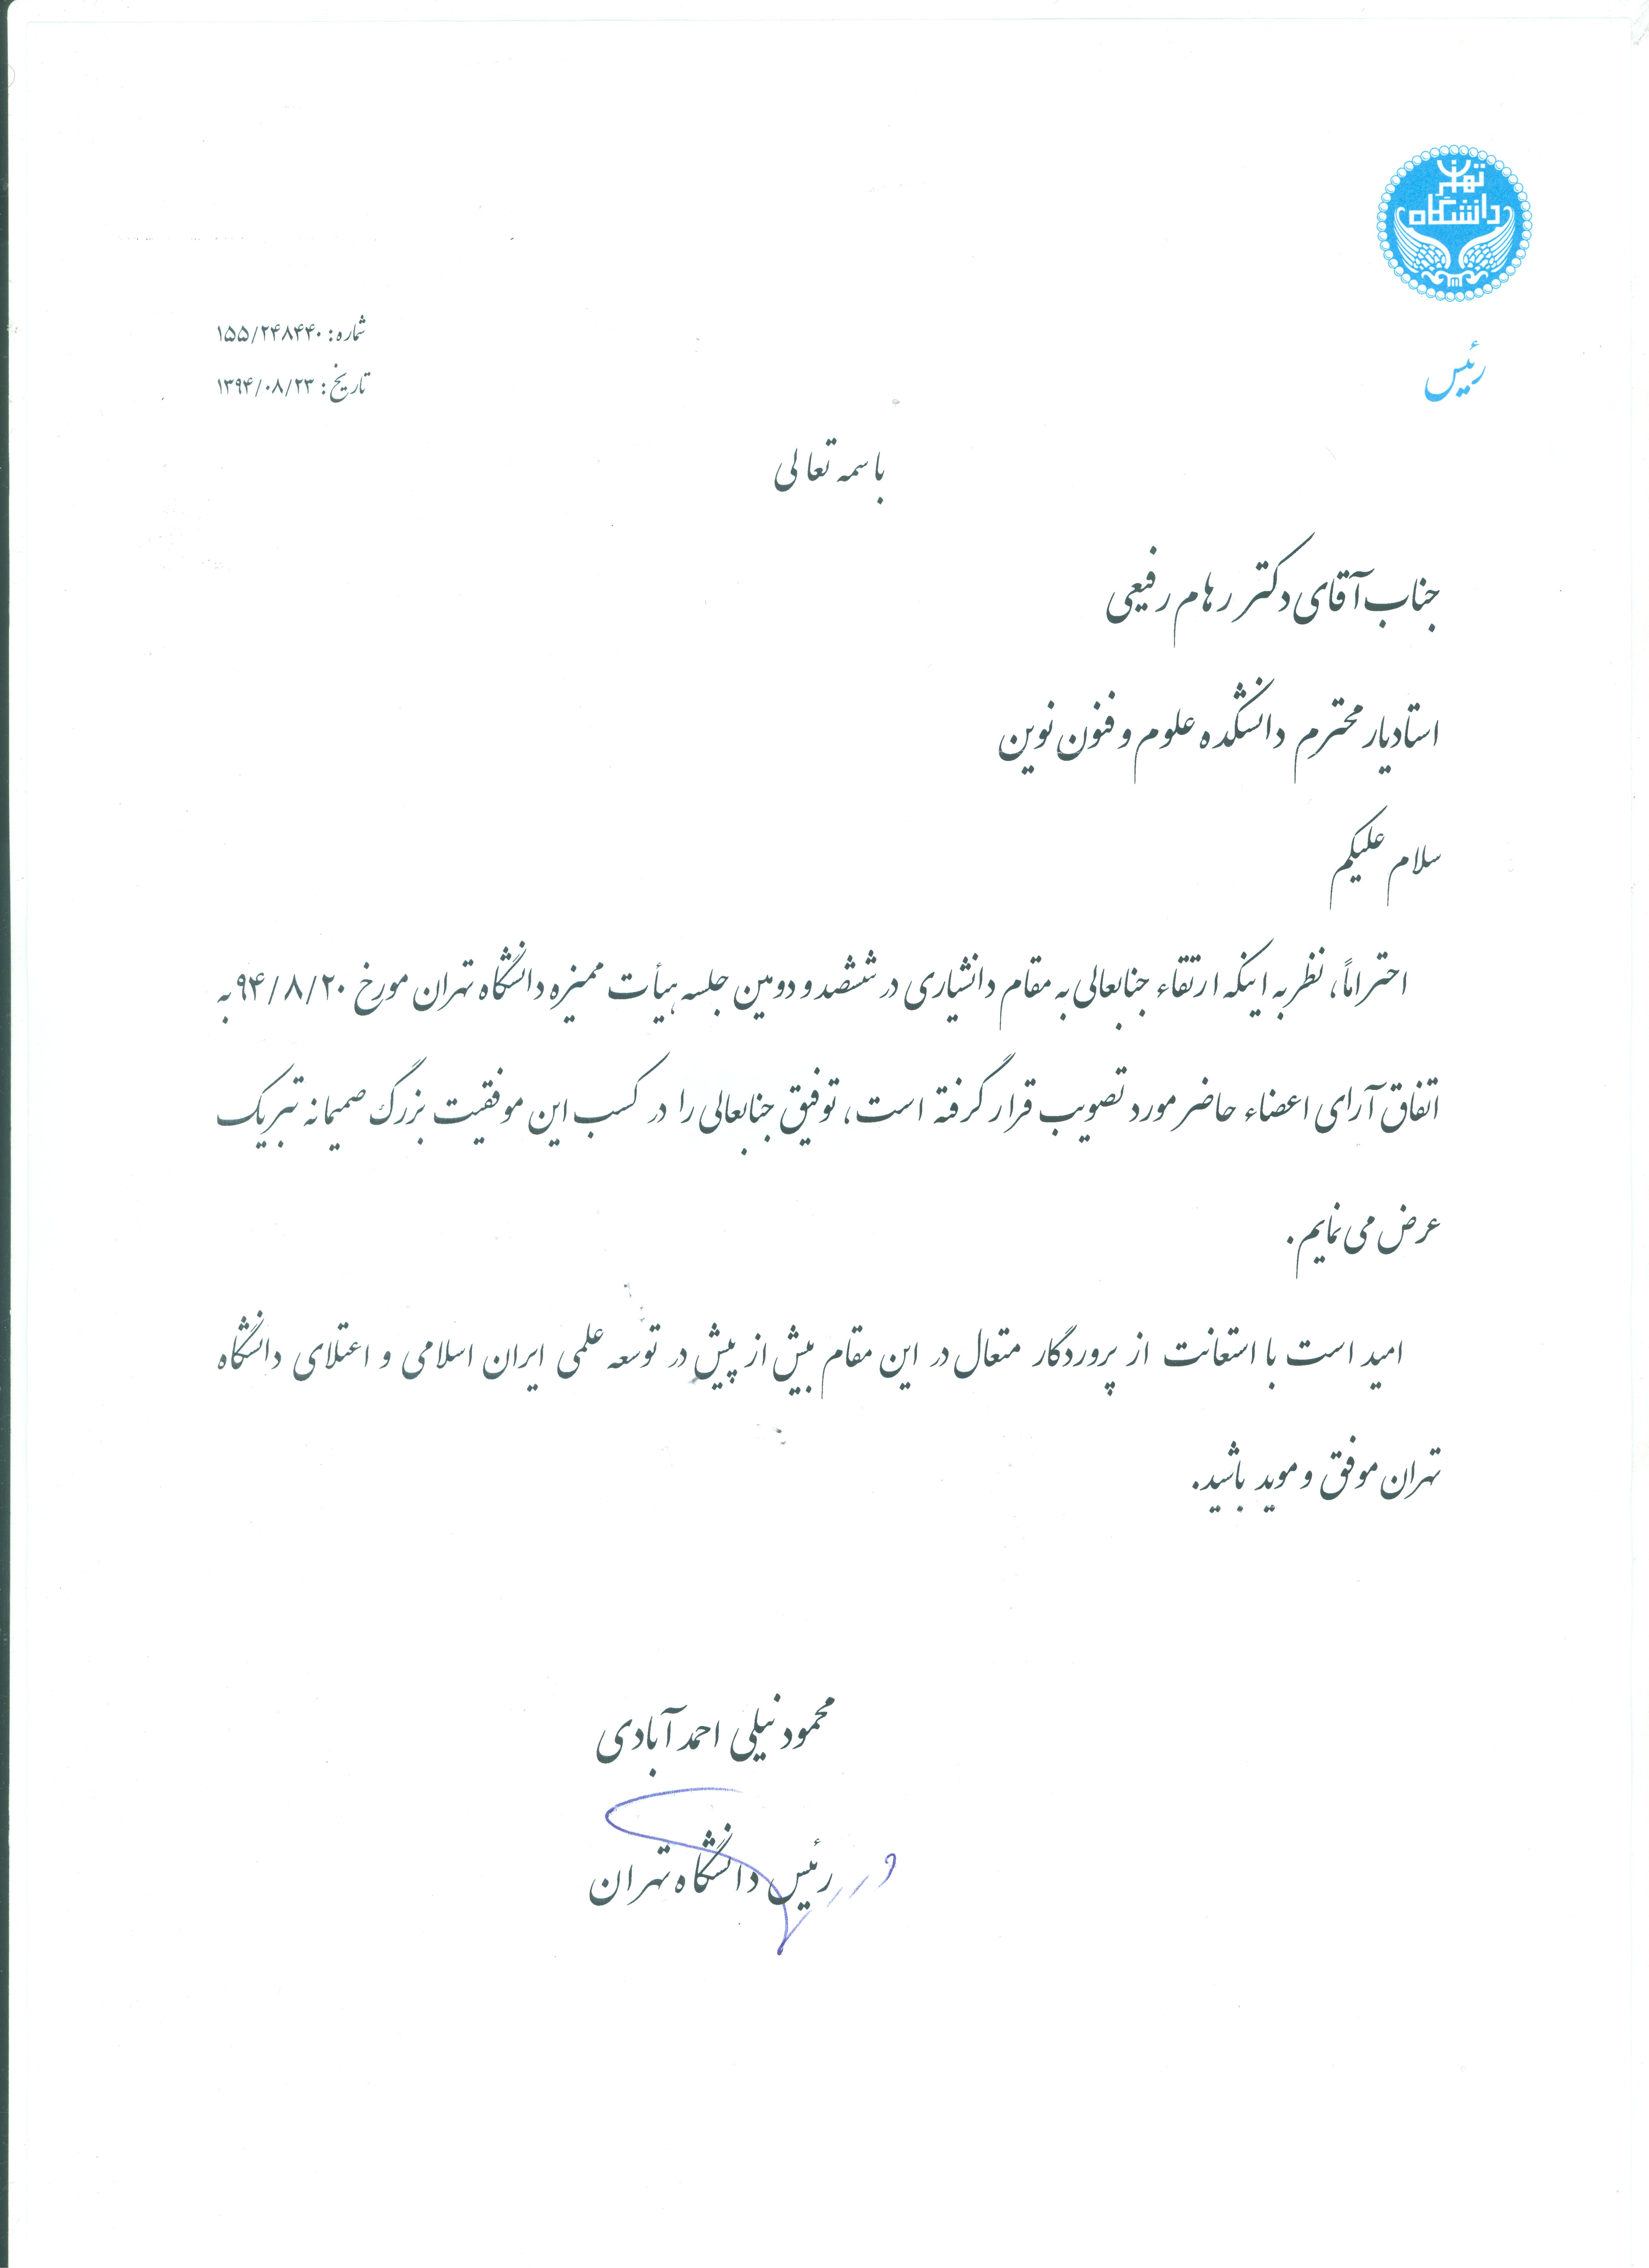 تهران
دانشگاه
رئیس
شماره: ۱۵۵/۲۴۸۴۴۰
تاریخ: ۱۳۹۴/۰۸/۲۳
باسمه تعالی
جناب آقای دکتر رهام رفیعی
استادیار محترم دانشکده علوم و فنون نوین
سلام علیکم
احتراماً، نظر به اینکه ارتقاء جنابعالی به مقام دانشیاری در ششصد و دومین جلسه هیأت ممیزه دانشگاه تهران مورخ ۹۴/۸/۲۰ به
اتفاق آرای اعضاء حاضر مورد تصویب قرار گرفته است، توفیق جنابعالی را در کسب این موفقیت بزرگ صمیمانه تبریک
عرض می نمایم.
امید است با استعانت از پروردگار متعال در این مقام بیش از پیش در توسعه علمی ایران اسلامی و اعتلای دانشگاه
تهران موفق و موید باشید.
محمود نیلی احمدآبادی
رئیس دانشگاه تهران